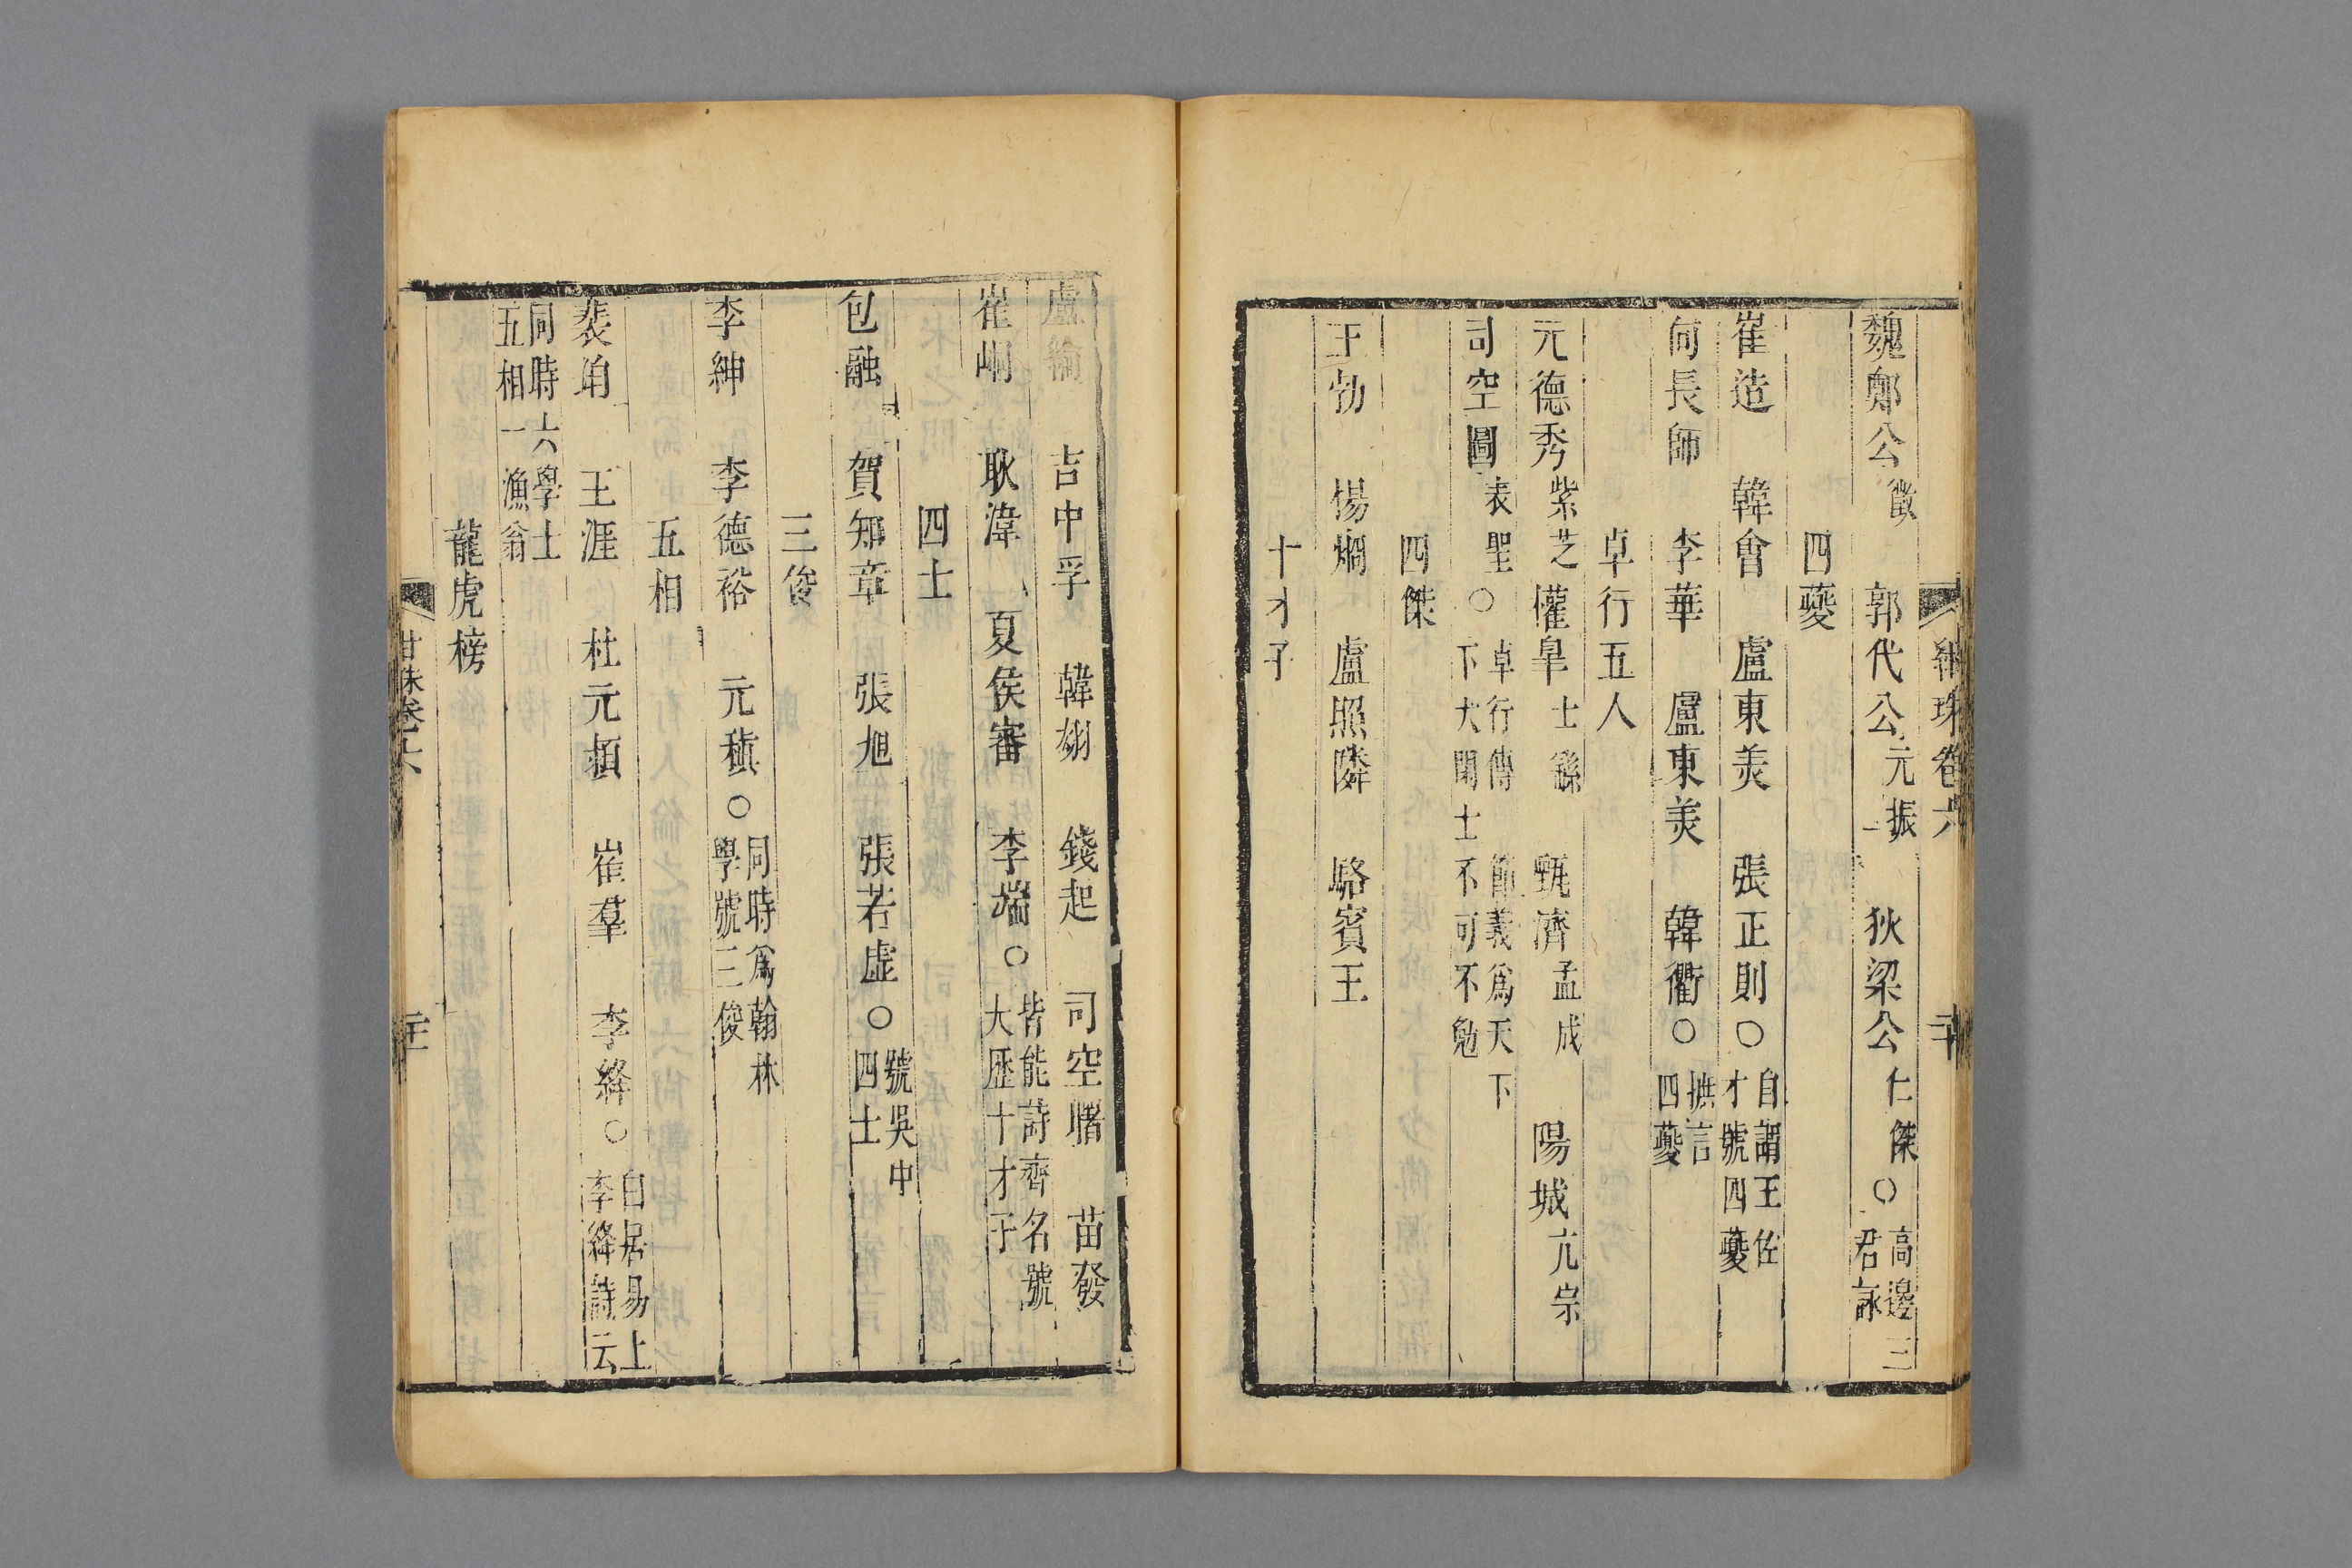 紺珠卷六 二十
魏鄭公徵 郭代公元振 狄梁公仁傑○高邊三君詠
四夔
崔造 韓會 盧東羙 張正則○自謂王佐才號四夔
何長師 李華 盧東羙 韓衢○摭言四夔
卓行五人
元德秀紫芝 權皐士繇 甄濟孟成 陽城亢宗
司空圖表聖○卓行傳節義爲天下下大閑士不可不勉
四傑
王勃 楊烱 盧照隣 駱賓王
十才子
盧綸 吉中孚 韓翃 錢起 司空曙 苗發
崔峒 耿湋 夏侯審 李端○皆能詩齊名號大歷十才子
四士
包融 賀知章 張旭 張若虛○號吳中四士
三俊
李紳 李德裕 元稹○同時爲翰林學號三俊
五相
裴垍 王涯 杜元頴 崔羣 李絳○白居易上李絳詩云
同時六學士五相一漁翁
龍虎榜
甘珠卷六 二十一